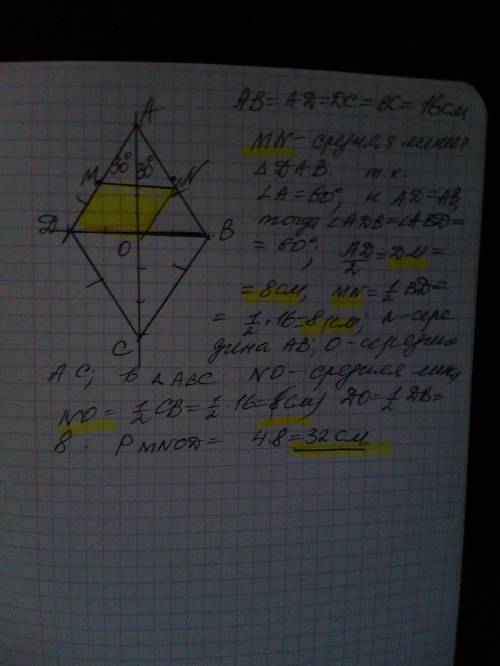 A
30° 30°
M N
D B
O
C
AB = AD = DC = BC = 16 см
MN - средняя линия
△DAB. т.к.
∠A = 60°, и AD = AB,
тогда ∠ADB = ∠ABD =
= 60°; AD/2 = DM =
= 8 см, MN = 1/2 BD =
= 1/2 · 16 = 8 см; N - сере
дина AB; O - середина
AC; в △ABC NO - средняя лин
NO = 1/2 CB = 1/2 · 16 = 8 см) DO = 1/2 DB =
8. P MNOD = 4·8 = 32 см